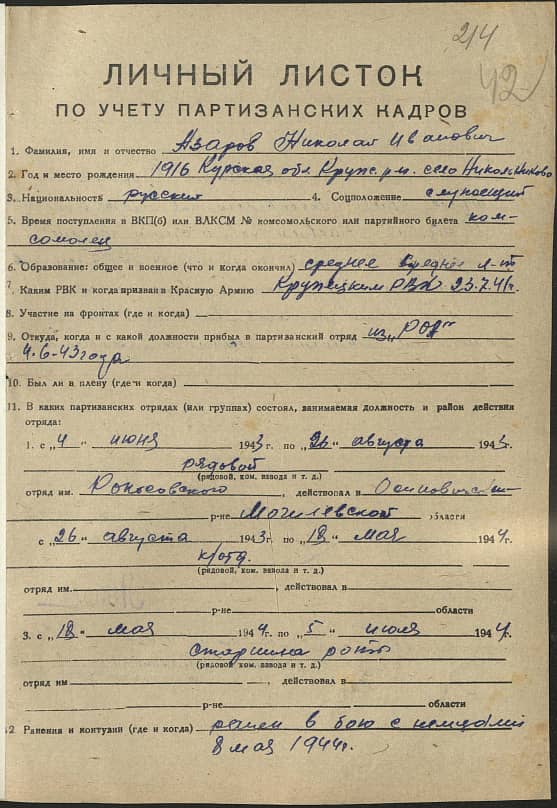 214
42
ЛИЧНЫЙ ЛИСТОК
ПО УЧЕТУ ПАРТИЗАНСКИХ КАДРОВ
1. Фамилия, имя и отчество Азаров Николай Иванович
2. Год и место рождения 1916 Курская обл Крупс. р-н. село Никольниково
3. Национальность русский 4. Соцположение служащий
5. Время поступления в ВКП(б) или ВЛКСМ № комсомольского или партийного билета ком-
сомолец
6. Образование: общее и военное (что и когда окончил) среднее
7. Каким РВК и когда призван в Красную Армию Крупецким РВК 23.7.41г.
8. Участие на фронтах (где и когда)
9. Откуда, когда и с какой должности прибыл в партизанский отряд из „РОА"
4-6-43 года
10. Был ли в плену (где и когда)
11. В каких партизанских отрядах (или группах) состоял, занимаемая должность и район действия
отряда:
1. с „4" июня 1943г. по „26" августа 1943г.
рядовой
(рядовой, ком. взвода и т. д.)
отряд им. Рокосовского, действовал в Осиповичском
р-не Могилевской области
с „26" августа 1943г. по „18" мая 1944г.
к/отд.
(рядовой, ком. взвода и т. д.)
отряд им. , действовал в
р-не области
3. с „18" мая 1944г. по „5" июля 1944г.
старшина роты
(рядовой, ком. взвода и т. д.)
отряд им , действовал в
р-не области
2. Ранения и контузии (где и когда) ранен в бою с немцами
8 мая 1944г.